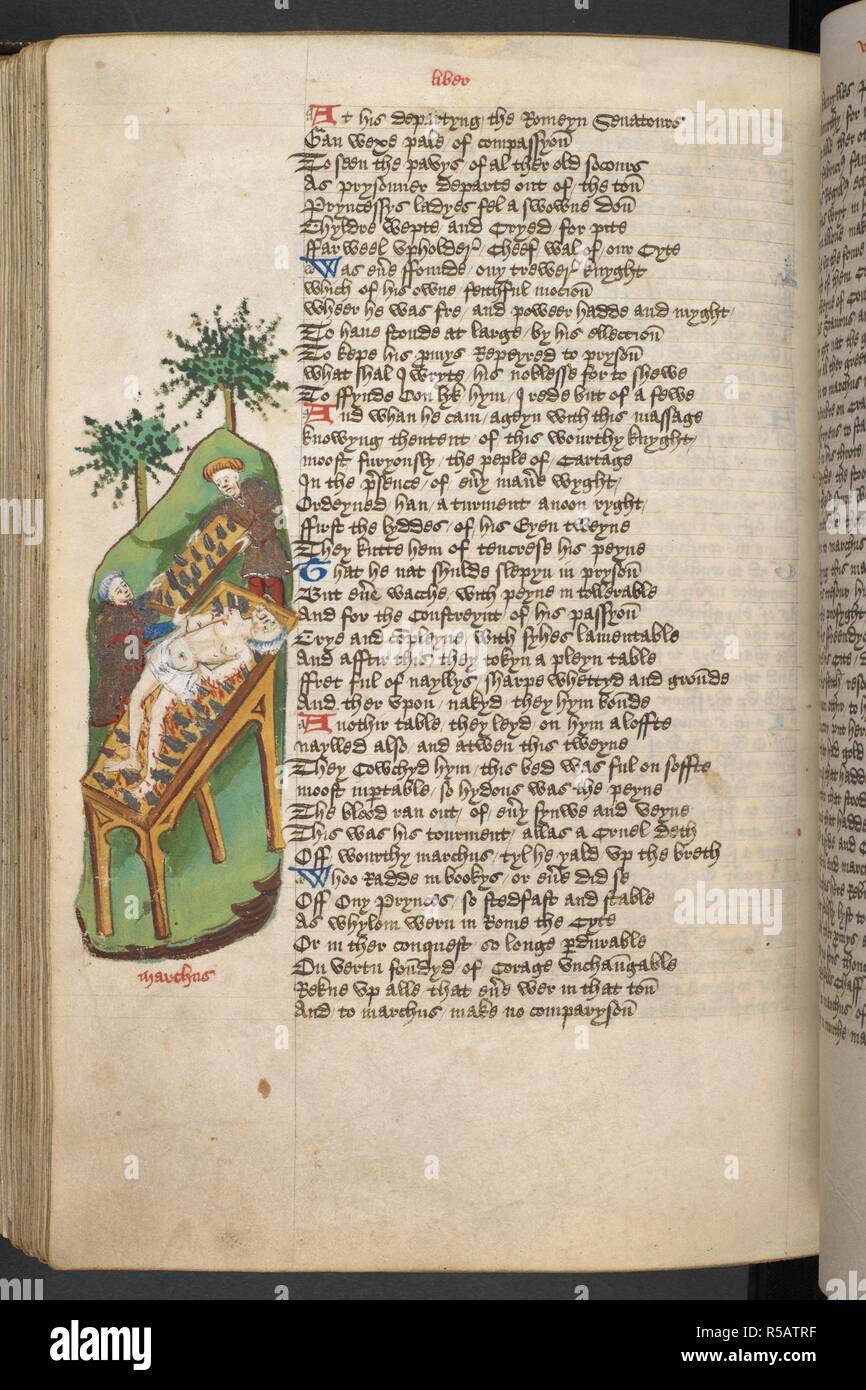 liber
At his departyng the Romeyn Senatours
Gan wexe pale of compassyoū
To seen the pavys of al ther old socours
As prysonnier departe out of the toū
Pryncessys ladyes fel a swowne doū
Chyldre wepte and Cryed for pite
ffar weel vpholder Cheef wal of our Cyte
Was eūe ffounde ony trewer knyght
which of his owne feithful mocioū
wheer he was fre and poweer hadde and myght
To haue stonde at large by his elleccioū
To kepe his pmys Repeyred to prysoū
what shal I wryte his noblesse for to shewe
To ffynde oon lyk hym I rede but of a fewe
And whan he cam ageyn with this massage
knowyng thentent of this wourthy knyght
moost furyously the peple of Cartage
In the p̄sence of eūy man̄e wyght
Ordeyned han a turment anoon ryght
ffirst the lyddes of his Eyen tweyne
They kutte hem of tencrese his peyne
That he nat shulde slepyn in prysoū
But eūe wacche with peyne in tollerable
And for the Constreynt of his passyoū
Crye and Cōpleyne with syhes lamentable
And afftir this they tokyn a pleyn table
ffret ful of nayllys sharpe whettyd and groūde
And ther vpon nakyd they hym boūde
Anothir table they leyd on hym a loffte
naylled also and atwen this tweyne
They Cowchyd hym this bed was ful on soffte
moost inptable so hydous was the peyne
The blood ran out of eūy synwe and veyne
This was his tourment allas a Cruel deth
Off wourthy marchus tyl he yald vp the breth
Whoo Radde in bookys or eūe did se
Off Ony Prynces so stedfast and stable
As whylom wern in Rome the Cyte
Or in ther conquest so longe p̄durable
On vertu foūdyd of Corage vnchaūgable
Rekne vp alle that eūe wer in that toū
And to marchus make no comparysoū
marchus
alamy
alamy
Image ID: R5ATRF
www.alamy.com